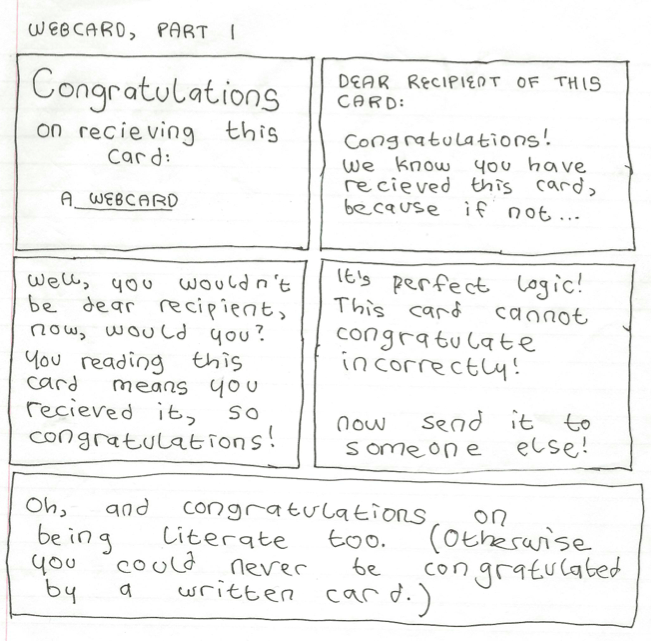 WEBCARD, PART 1
Congratulations
on recieving this
card:
A WEBCARD
DEAR RECIPIENT OF THIS
CARD:
Congratulations!
We know you have
recieved this card,
because if not...
Well, you wouldn't
be dear recipient,
now, would you?
You reading this
card means you
recieved it, so
congratulations!
It's perfect logic!
This card cannot
congratulate
incorrectly!
now send it to
someone else!
Oh, and congratulations on
being literate too. (Otherwise
you could never be congratulated
by a written card.)